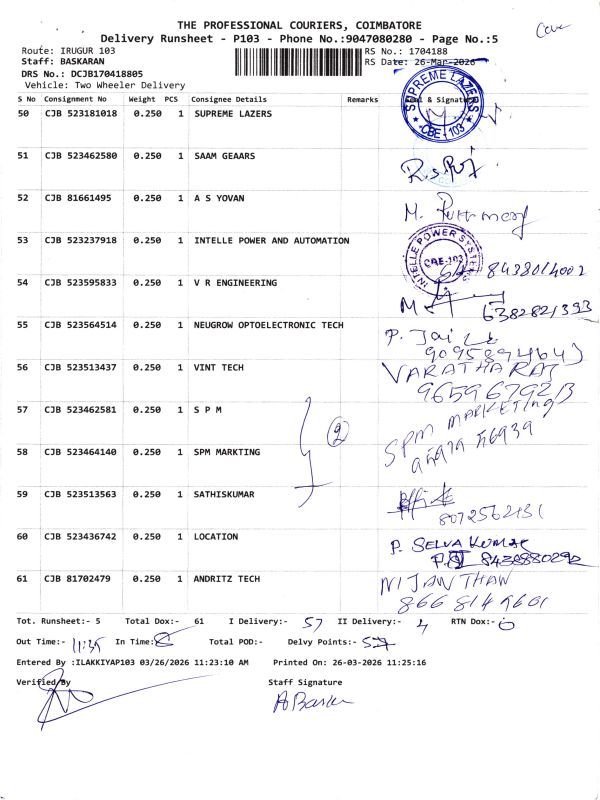 THE PROFESSIONAL COURIERS, COIMBATORE
Delivery Runsheet - P103 - Phone No.:9047080280 - Page No.:5
Route: IRUGUR 103
RS No.: 1704188
Staff: BASKARAN
RS Date: 26-Mar-2026
DRS No.: DCJB170418805
Vehicle: Two Wheeler Delivery
S No Consignment No Weight PCS Consignee Details Remarks & Signature
50 CJB 523181018 0.250 1 SUPREME LAZERS
SUPREME LAZERS
CBE - 103
51 CJB 523462580 0.250 1 SAAM GEAARS
52 CJB 81661495 0.250 1 A S YOVAN
M.
53 CJB 523237918 0.250 1 INTELLE POWER AND AUTOMATION
INTELLE POWER SYSTEMS
CBE-103
8438014002
54 CJB 523595833 0.250 1 V R ENGINEERING
6382821393
55 CJB 523564514 0.250 1 NEUGROW OPTOELECTRONIC TECH
P. Jai
56 CJB 523513437 0.250 1 VINT TECH
VARATHARAJ
57 CJB 523462581 0.250 1 S P M
(2)
SPM MARKETING
58 CJB 523464140 0.250 1 SPM MARKTING
59 CJB 523513563 0.250 1 SATHISKUMAR
8072562131
60 CJB 523436742 0.250 1 LOCATION
P. SELVA KUMAR
61 CJB 81702479 0.250 1 ANDRITZ TECH
NIJANTHAN
8668149601
Tot. Runsheet:- 5 Total Dox:- 61 I Delivery:- 57 II Delivery:- 4 RTN Dox:- 0
Out Time:- 11:35 In Time:- 8 Total POD:- Delvy Points:- 57
Entered By :ILAKKIYAP103 03/26/2026 11:23:10 AM Printed On: 26-03-2026 11:25:16
Verified By Staff Signature
A Basker